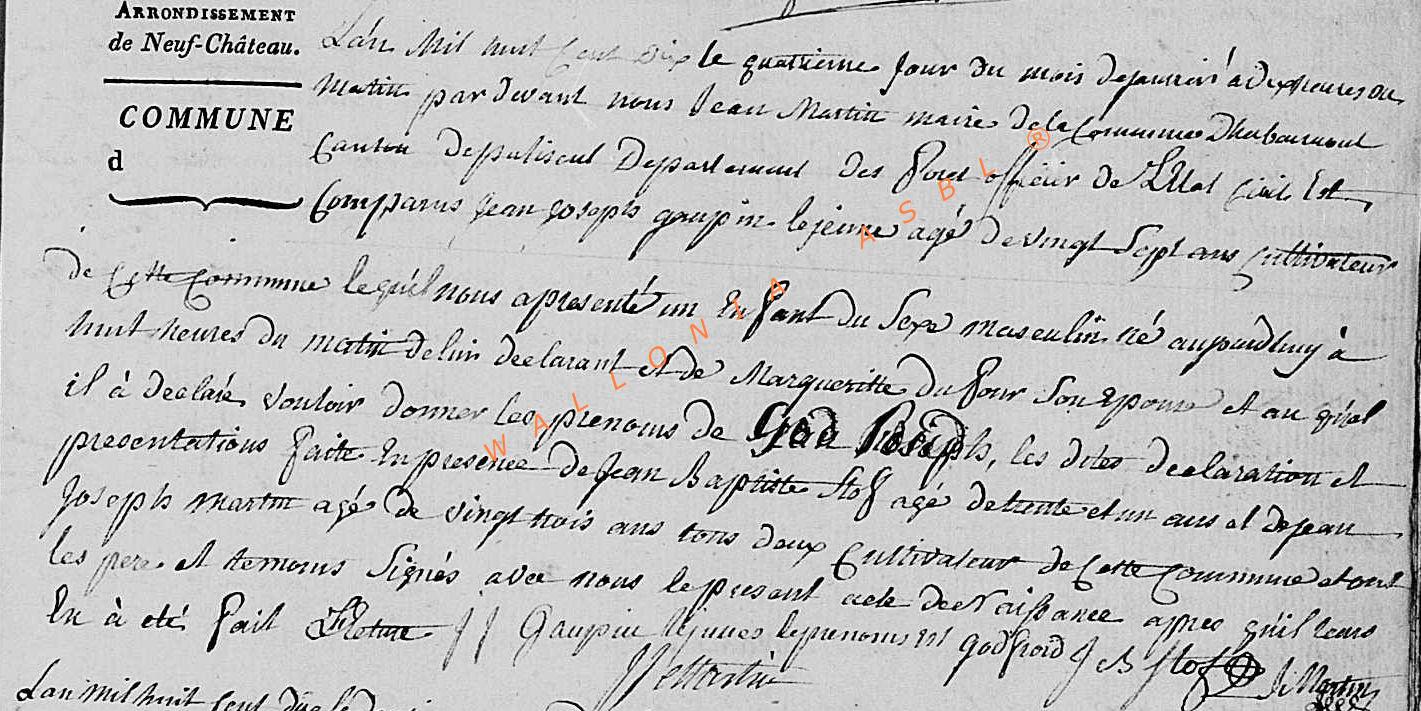 ARRONDISSEMENT
de Neuf-Château.
COMMUNE
d
L'an Mil huit Cent dix le quatrieme Jour du mois dejanvier à dixheures du
Matin pardevant nous Jean Martin maire dela Commune Dhabaumont
Canton depaliseul Departement des Foret officier de L'Etat Civil Est
Comparus Jean Joseph gaupin lejeune agé de vingt Sept ans Cultivateur
de Cette Commune lequel nous apresenté un Enfant du Sexe masculin né aujourdhuy à
huit heures du matin delui declarant et de Margueritte Dufour Son Epouse et au quel
il à declaré vouloir donner les prenoms de God Joseph, les dites declaration et
presentations faite En presence de Jean Baptiste Stof agé detrente et un ans et dejean
Joseph Martin agé de vingt trois ans tous deux Cultivateur de Cette Commune et ont
les pere et temoins Signés avec nous le present acte de Naissance apres qu'il leurs
En à eté fait Lecture JJ Gaupin lejeune leprenoms est godfroid J B Stof
JJ Martin J. Martin
L'an mil huit Cent
WALLONIA ASBL ®